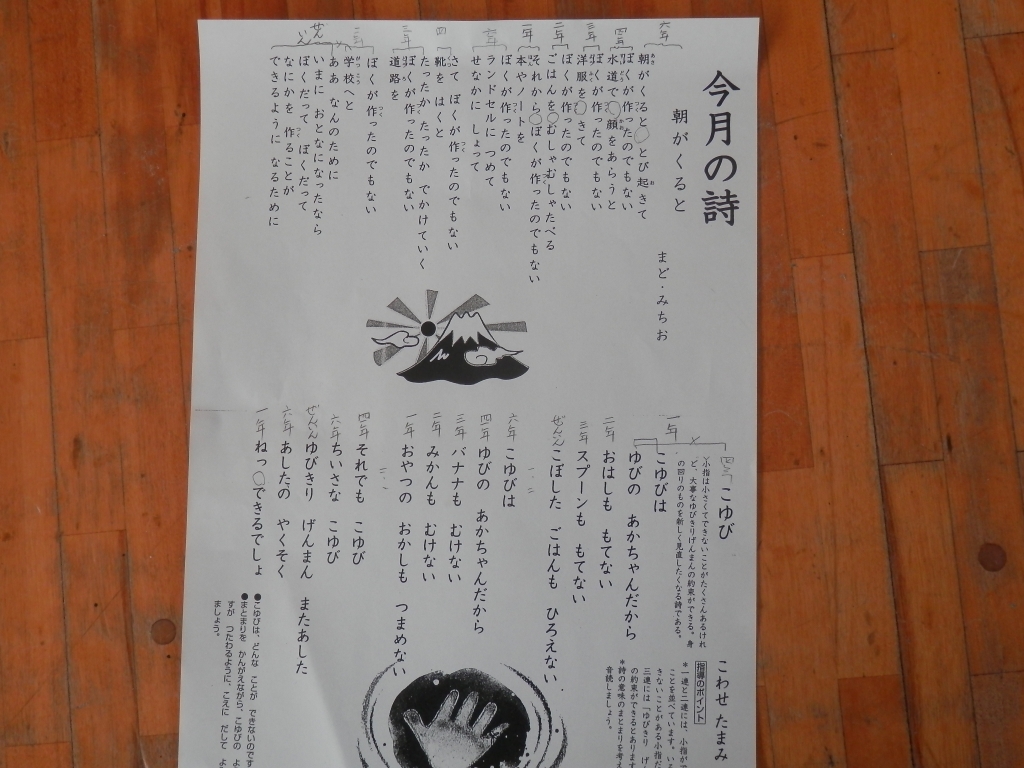 今月の詩
朝が くると
まど・みちお
六年
朝がくると とび起きて
四年
ぼくが作ったのでもない
水道で 顔をあらうと
三年
ぼくが作ったのでもない
洋服を きて
二年
ぼくが作ったのでもない
ごはんを むしゃむしゃたべる
一年
それから ぼくが作ったのでもない
本やノートを
ぼくが作ったのでもない
ランドセルに つめて
せなかに しょって
四
さて ぼくが作ったのでもない
靴を はくと
たったか たったか でかけていく
ぼくが作ったのでもない
道路を
ぼくが作ったのでもない
学校へと
ああ なんのために
ぜんいん
いまに おとなになったなら
ぼくだって ぼくだって
なにかを 作ることが
できるように なるために
こゆび
こわせ たまみ
小指は小さくてできないことがたくさんあるけれ
ど、大事なゆびきりげんまんの約束ができる。身
の回りのものを新しく見直したくなる詩である。
一年
こゆびは
ゆびの あかちゃんだから
二年
おはしも もてない
三年
スプーンも もてない
ぜんいん
こぼした ごはんも ひろえない
六年
こゆびは
四年
ゆびの あかちゃんだから
三年
バナナも むけない
二年
みかんも むけない
一年
おやつの おかしも つまめない
四年
それでも こゆび
六年
ちいさな こゆび
ぜんいん
ゆびきり げんまん またあした
六年
あしたの やくそく
一年
ねっ できるでしょ
指導のポイント
*一連と二連には、小指がで
ことを並べています。
きないことがある小指だ
三連には「ゆびきり げ
の約束ができるとあります
*詩の意味のまとまりを考え
音読しましょう。
●こゆびは、どんな ことが できないのです
●まとまりを かんがえながら、こゆびの よ
すが つたわるように、こえに だして よ
ましょう。